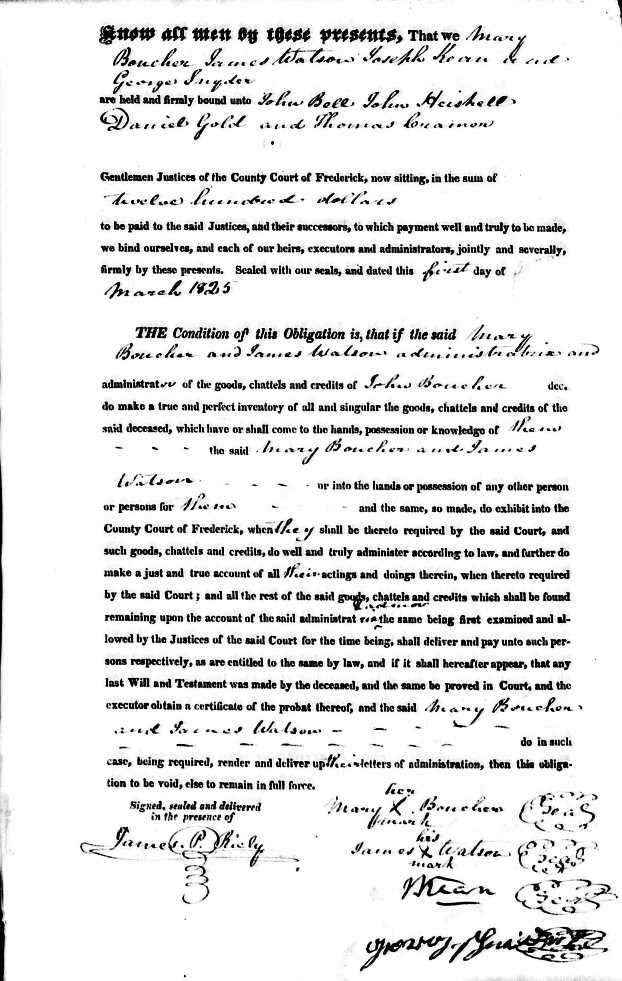 Know all men by these presents, That we Mary
Boucher James Watson Joseph Kean and
George Snyder
are held and firmly bound unto John Bell John Heiskell
Daniel Gold and Thomas Cramer
Gentlemen Justices of the County Court of Frederick, now sitting, in the sum of
twelve hundred dollars
to be paid to the said Justices, and their successors, to which payment well and truly to be made,
we bind ourselves, and each of our heirs, executors and administrators, jointly and severally,
firmly by these presents. Sealed with our seals, and dated this first day of
March 1825
THE Condition of this Obligation is, that if the said Mary
Boucher and James Watson administratrix and
administrator of the goods, chattels and credits of John Boucher dec.
do make a true and perfect inventory of all and singular the goods, chattels and credits of the
said deceased, which have or shall come to the hands, possession or knowledge of them
- - - the said Mary Boucher and James
Watson - - - or into the hands or possession of any other person
or persons for them - - and the same, so made, do exhibit into the
County Court of Frederick, when they shall be thereto required by the said Court, and
such goods, chattels and credits, do well and truly administer according to law, and further do
make a just and true account of all their actings and doings therein, when thereto required
by the said Court; and all the rest of the said goods, chattels and credits which shall be found
remaining upon the account of the said administrat the same being first examined and al-
lowed by the Justices of the said Court for the time being, shall deliver and pay unto such per-
sons respectively, as are entitled to the same by law, and if it shall hereafter appear, that any
last Will and Testament was made by the deceased, and the same be proved in Court, and the
executor obtain a certificate of the probat thereof, and the said Mary Boucher
and James Watson - - - -
- - - - - - - - do in such
case, being required, render and deliver up their letters of administration, then this obliga-
tion to be void, else to remain in full force.
Signed, sealed and delivered
in the presence of
James P. Riely
her
Mary X Boucher Seal
mark
his
James X Watson Seal
mark
Kean Seal